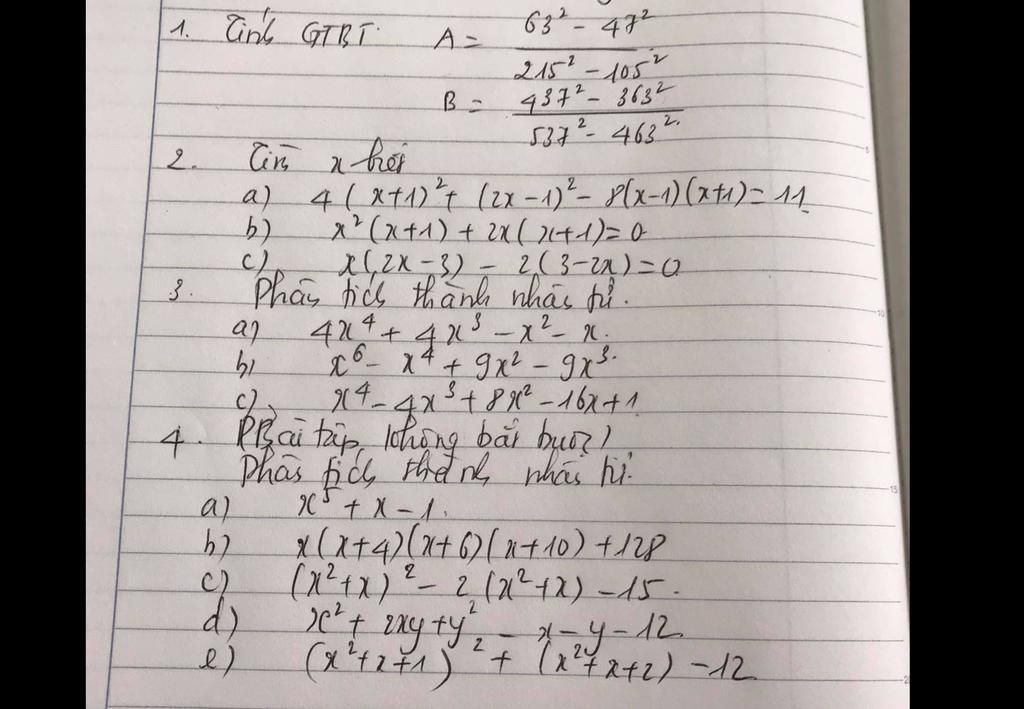 1. Tính GTBT. A = \frac{63² - 47²}{215² - 105²}
B = \frac{437² - 363²}{537² - 463²}
2. Tìm x biết
a) 4(x+1)² + (2x-1)² - 8(x-1)(x+1) = 11
b) x²(x+1) + 2x(x+1) = 0
c) x(2x-3) - 2(3-2x) = 0
3. Phân tích thành nhân tử.
a) 4x⁴ + 4x³ - x² - x.
b) x⁶ - x⁴ + 9x² - 9x³.
c) x⁴ - 4x³ + 8x² - 16x + 1
4. Bài tập không bắt buộc)
Phân tích thành nhân tử.
a) x⁵ + x - 1.
b) x(x+4)(x+6)(x+10) + 128
c) (x²+x)² - 2(x²+x) - 15.
d) x² + 2xy + y² - x - y - 12
e) (x²+x+1)² + (x²+x+2) - 12